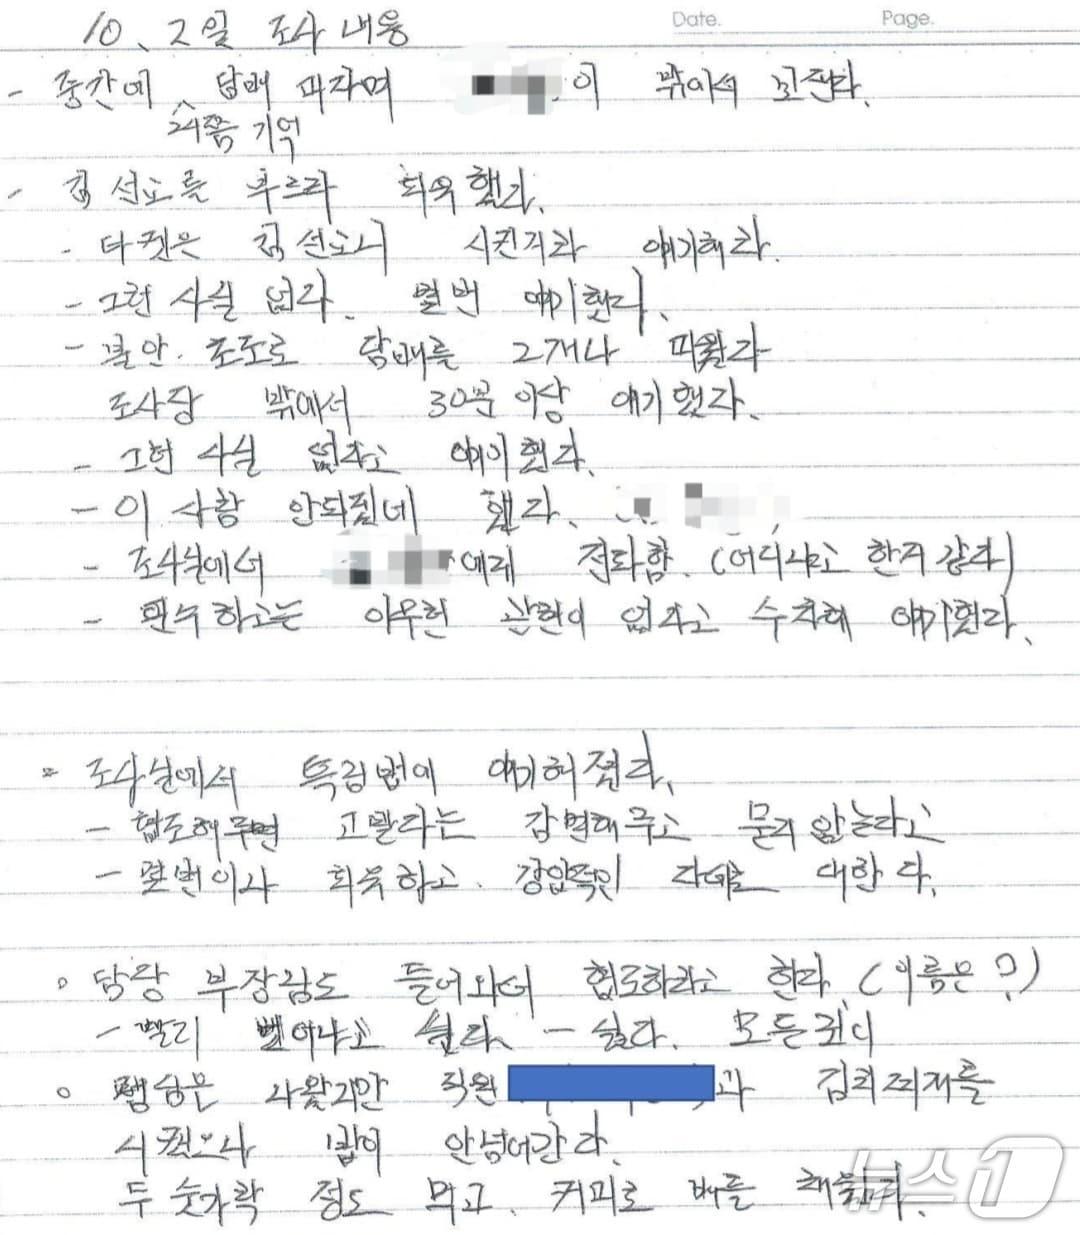 Date. Page.
10. 2일 조사 내용
- 중간에 담배 피자며 이 밖에서 꼬신다.
2시쯤 기억
- 김선교를 부르라 회유했다.
- 타켓은 김선교니 시킨거라 얘기해라.
- 그런 사실 없다. 열번 얘기했다.
- 불안. 초조로 담배를 2개나 피웠다
조사장 밖에서 30분 이상 얘기했다.
- 그런 사실 없다고 얘기했다.
- 이 사람 안되겠네 했다.
- 조사실에서 에게 전화함. (어디냐고 한거 같다)
- 한두하고는 아무런 관련이 없다고 수차례 얘기했다.
- 조사실에서 특검법이 얘기해졌다.
- 협조해주면 고발라는 감면해주고 묻지 않는다고
- 몇번이나 회유하고. 강압적인 자세로 대한다.
담당 부장검도 들어와서 협조하라고 한다. (이름은?)
- 빨리 벗어나고 싶다. - 싶다. 모든것이
햄심은 사왔지만 직원 과 김치찌개를
시켰으나 밥이 안넘어간다.
두 숫가락 정도 먹고. 커피로 배를 채웠다.
뉴스1